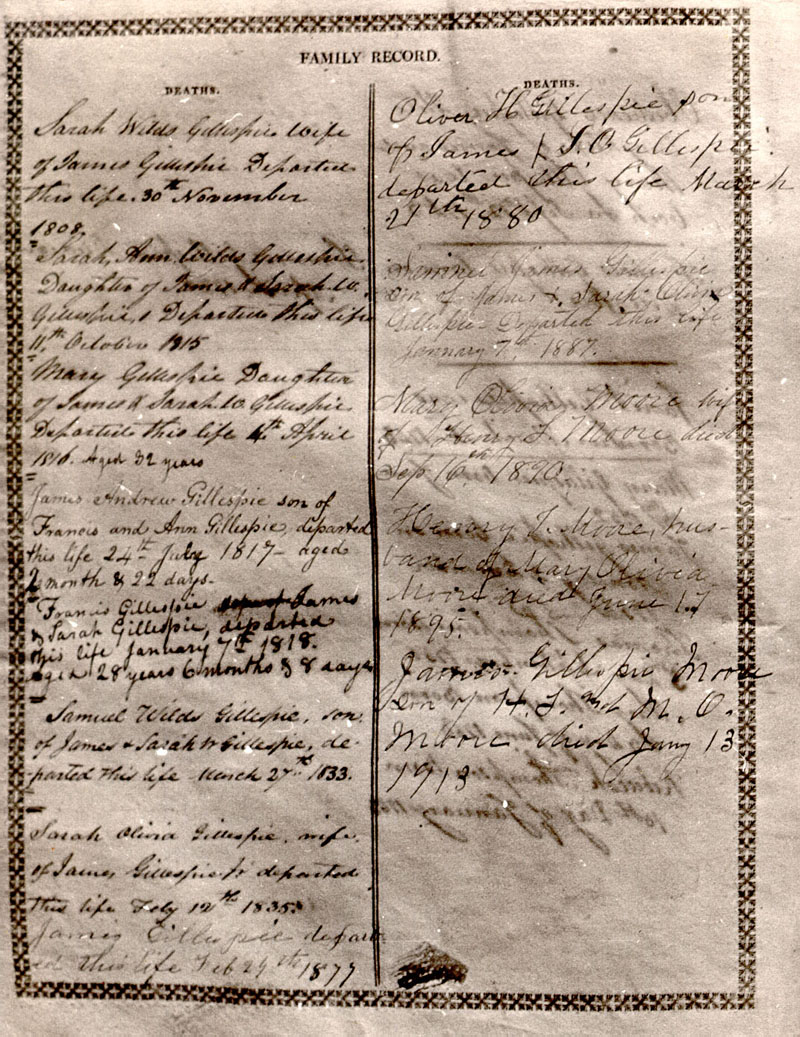 FAMILY RECORD.
DEATHS.
Sarah Wilds Gillespie wife
of James Gillespie Departed
this life 30th November
1808.
Sarah Ann Wilds Gillespie
Daughter of James & Sarah W.
Gillespie, Departed this life
11th October 1815
Mary Gillespie Daughter
of James & Sarah W Gillespie
Departed this life 4th April
1816. Aged 32 years
James Andrew Gillespie son of
Francis and Ann Gillespie, departed
this life 24th July 1817 – aged
month & 22 days-
Francis Gillespie James
& Sarah Gillespie, departed
this life January 7th 1818.
aged 28 years 6 months & 8 days
Samuel Wilds Gillespie, son
of James & Sarah W Gillespie, de-
parted this life March 27th 1833.
Sarah Olivia Gillespie, wife
of James Gillespie Jr departed
this life Feby 12th 1835.
James Gillespie depart-
ed this life Feb 29th 1877
DEATHS.
Oliver H Gillespie son
of James & S. O Gillespie
departed this life March
27th 1880
Samuel James Gillespie
son of James & Sarah Olivia
Gillespie Departed this life
January 7th 1887.
Mary Olivia Moore wife
of Henry T. Moore died
Sep 16th 1890
Henry T. Moore, hus-
band of Mary Olivia
Moore died June 17
1895.
James Gillespie Moore
Son of H. T. and M. O.
Moore died Jany 13
1913